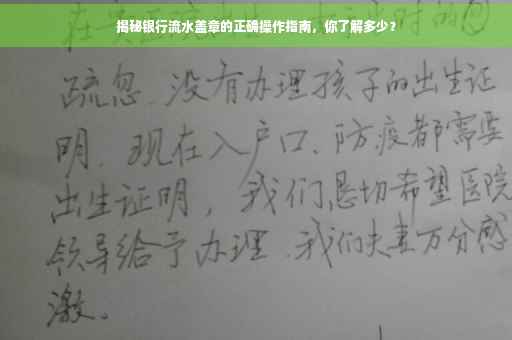 揭秘银行流水盖章的正确操作指南，你了解多少？
疏忽、没有办理孩子的出生证
明。现在入户口、防疫都需要
出生证明，我们恳切希望医院
领导给予办理，我们夫妻万分感
激。